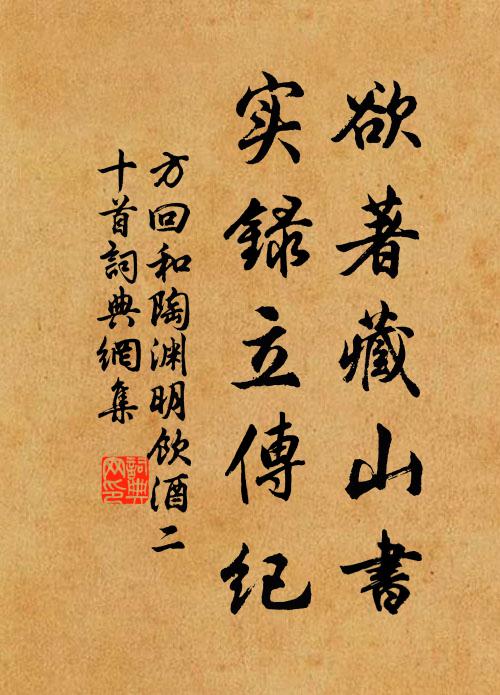 欲著藏山書
实録立傳紀
方回和陶渊明飲酒二
十首詞典網集